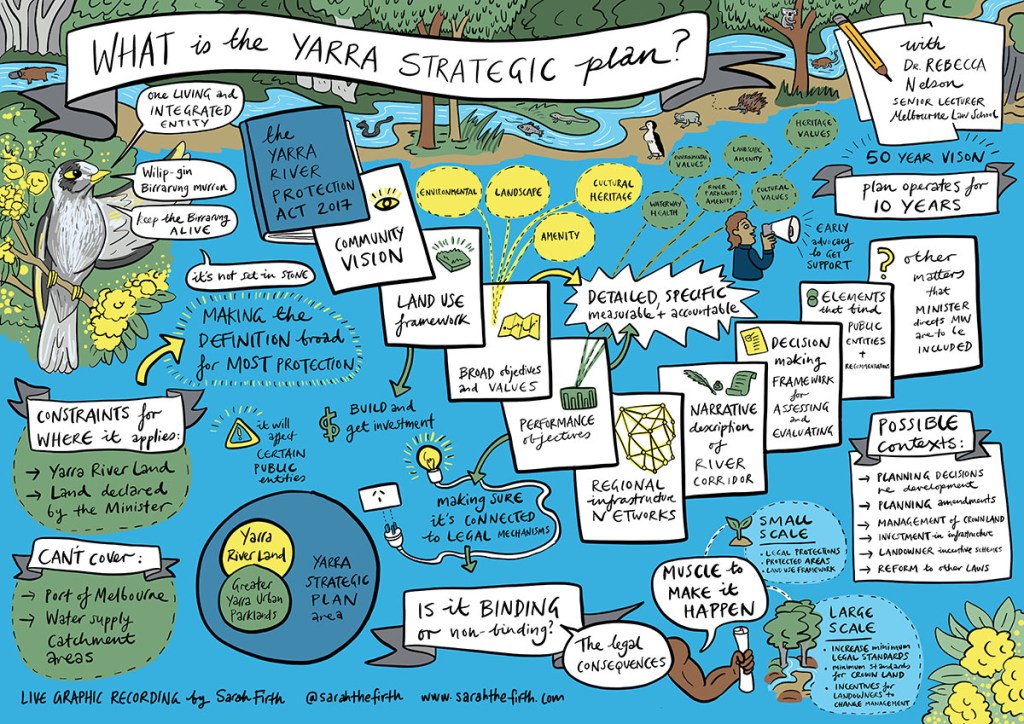 WHAT is the YARRA STRATEGIC plan?
with
Dr. REBECCA
Nelson
SENIOR LECTURER
Melbourne Law School
50 YEAR VISON
plan operates for
10 YEARS
one LIVING and
INTEGRATED
ENTITY
Wilip-gin
Birrarung murron
keep the Birrarung
ALIVE
the
YARRA
RIVER
PROTECTION
ACT 2017
it's not set in STONE
MAKING the
DEFINITION broad
for MOST PROTECTION
COMMUNITY
VISION
LAND USE
framework
BUILD and
get investment
ENVIRONMENTAL
LANDSCAPE
CULTURAL
HERITAGE
AMENITY
BROAD objectives
and VALUES
PERFORMANCE
objectives
DETAILED, SPECIFIC
measurable + accountable
ENVIRONMENTAL
VALUES
LANDSCAPE
AMENITY
HERITAGE
VALUES
WATERWAY
HEALTH
RIVER
PARKLANDS
AMENITY
CULTURAL
VALUES
EARLY
advocacy
to GET
SUPPORT
REGIONAL
infrastructure
NETWORKS
NARRATIVE
description
of
RIVER
CORRIDOR
DECISION
making
FRAMEWORK
for
ASSESSING
and
EVALUATING
ELEMENTS
that bind
PUBLIC
ENTITIES
+
RECOMMENDATIONS
?
other
matters
that
MINISTER
directs MW
are to be
INCLUDED
CONSTRAINTS for
WHERE it applies:
→ Yarra River Land
→ Land declared
by the Minister
it will
affect
CERTAIN
PUBLIC
entities
CAN'T COVER:
→ Port of Melbourne
→ Water supply
Catchment
areas
Yarra
River Land
Greater
Yarra Urban
Parklands
YARRA
STRATEGIC
PLAN
area
making SURE
it's CONNECTED
to LEGAL MECHANISMS
IS it BINDING
or non-binding?
The legal
CONSEQUENCES
MUSCLE to
MAKE it
HAPPEN
SMALL
SCALE
• LEGAL PROTECTIONS
• PROTECTED AREAS
• LAND USE FRAMEWORK
LARGE
SCALE
• INCREASE minimum
LEGAL STANDARDS
• minimum STANDARDS
for CROWN LAND
• INCENTIVES for
LANDOWNERS to
CHANGE MANAGEMENT
POSSIBLE
contexts:
→ PLANNING DECISIONS
re development
→ PLANNING amendments
→ MANAGEMENT OF CROWN LAND
→ INVESTMENT in infrastructure
→ LANDOWNER incentive SCHEMES
→ REFORM to other LAWS
LIVE GRAPHIC RECORDING by Sarah Firth @sarahthefirth www.sarahthefirth.com